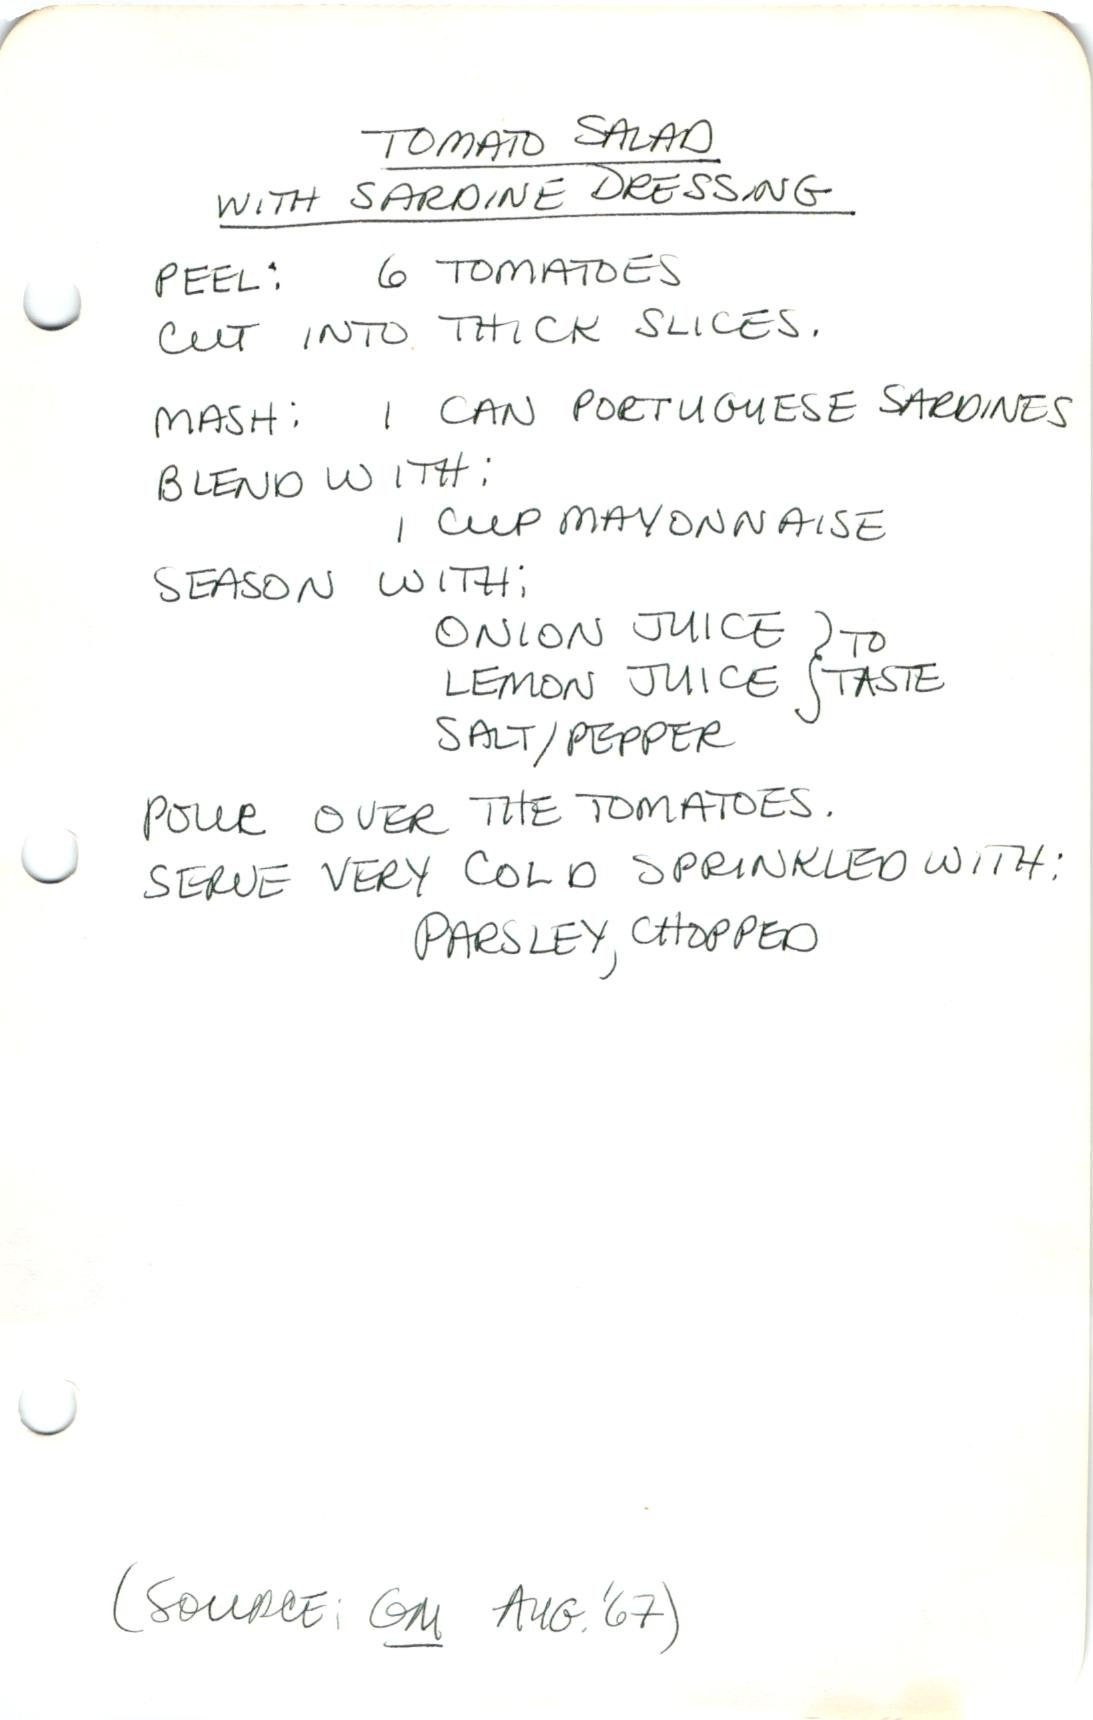 TOMATO SALAD
WITH SARDINE DRESSING
PEEL: 6 TOMATOES
CUT INTO THICK SLICES.
MASH: 1 CAN PORTUGUESE SARDINES
BLEND WITH:
1 CUP MAYONNAISE
SEASON WITH:
ONION JUICE } TO
LEMON JUICE } TASTE
SALT/PEPPER
POUR OVER THE TOMATOES.
SERVE VERY COLD SPRINKLED WITH:
PARSLEY, CHOPPED
(SOURCE: GM AUG. '67)